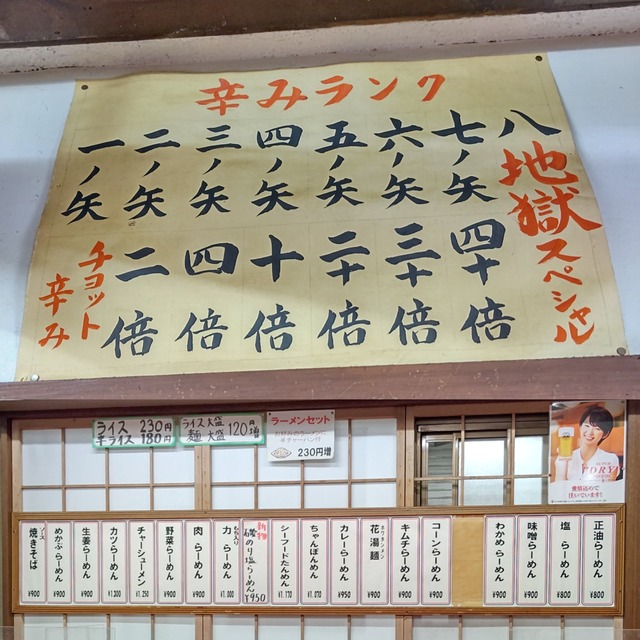 辛みランク
八
地獄スペシャル
七ノ矢
四十倍
六ノ矢
三十倍
五ノ矢
二十倍
四ノ矢
十倍
三ノ矢
四倍
二ノ矢
二倍
一ノ矢
チョット辛み
ライス 230円
半ライス 180円
ライス大盛
麺大盛
120円増
ラーメンセット
半チャーハン付
230円増
DRY
正油らーめん ¥800
塩らーめん ¥800
味噌らーめん ¥900
わかめらーめん ¥900
コーンらーめん ¥900
キムチらーめん ¥900
花湯麺 ¥900
カレーらーめん ¥950
ちゃんぽんめん ¥1.070
シーフードたんめん ¥1.170
のり塩らーめん ¥950
力らーめん ¥1.000
肉らーめん ¥900
野菜らーめん ¥900
チャーシューメン ¥1.250
カツらーめん ¥1.200
生姜らーめん ¥900
めかぶらーめん ¥900
ソース
焼きそば ¥900